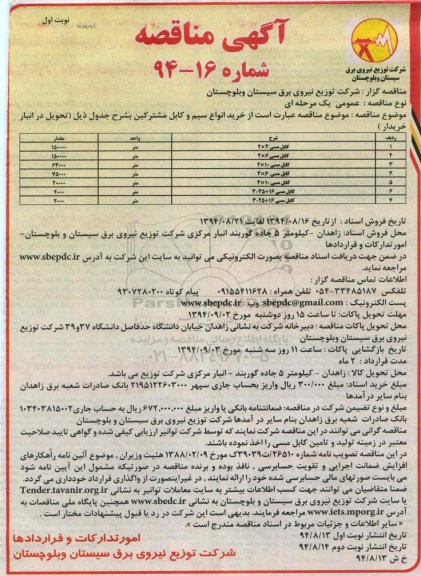 نوبت اول
آگهی مناقصه
شماره ۱۶-۹۴
شرکت توزیع نیروی برق
سیستان وبلوچستان
مناقصه گزار : شرکت توزیع نیروی برق سیستان وبلوچستان
نوع مناقصه : عمومی یک مرحله ای
موضوع مناقصه : موضوع مناقصه عبارت است از خرید انواع سیم و کابل مشترکین بشرح جدول ذیل (تحویل در انبار
خریدار )
ردیف شرح واحد مقدار
۱ کابل مسی ۴×۲ متر ۱۵۰۰۰۰
۲ کابل مسی ۶×۲ متر ۱۵۰۰۰۰
۳ کابل مسی ۱۰×۲ متر
۴ کابل مسی ۶×۴ متر ۷۵۰۰۰
۵ متر ۲۰۰۰۰
۶ متر ۲۰۰۰
۷ متر ۲۰۰۰
تاریخ فروش اسناد : از تاریخ ۱۳۹۴/۰۸/۱۶ لغایت ۱۳۹۴/۰۸/۲۱
محل فروش اسناد: زاهدان -کیلومتر ۵ جاده گوربند انبار مرکزی شرکت توزیع نیروی برق سیستان و بلوچستان-
امورتدارکات و قراردادها
در ضمن جهت دریافت اسناد مناقصه بصورت الکترونیکی می توانید به سایت این شرکت به آدرس www.sbepdc.ir
مراجعه نماید.
اطلاعات تماس مناقصه گزار :
تلفکس ۳۳۴۸۵۱۸۷-۰۵۴ تلفن همراه : ۰۹۱۵۵۴۱۱۶۲۸ پیام کوتاه ۹۳۰۷۲۸۰۲۰۰
پست الکترونیک : sbepdc@gmail.com وب : www.sbepdc.ir
مهلت تحویل پاکات: تا ساعت ۱۵ روز دوشنبه مورخ ۱۳۹۴/۰۹/۰۲
محل تحویل پاکات مناقصه: دبیرخانه شرکت به نشانی زاهدان خیابان دانشگاه حدفاصل دانشگاه ۳۷و۳۹ شرکت توزیع
نیروی برق سیستان وبلوچستان
تاریخ بازگشایی پاکات : ساعت ۱۱ روز سه شنبه مورخ ۱۳۹۴/۰۹/۰۳
مدت قرارداد : ۲ ماه
محل تحویل کالا : زاهدان - کیلومتر ۵ جاده گوربند - انبار مرکزی شرکت توزیع می باشد.
مبلغ خرید اسناد: مبلغ ۳۰۰/۰۰۰ ریال واریز بحساب جاری سپهر ۲۱۹۵۱۲۲۶۰۳۰۰۰ بانک صادرات شعبه برق زاهدان
بنام سایر در آمدها
مبلغ و نوع تضمین شرکت در مناقصه: ضمانتنامه بانکی یا واریز مبلغ ۶۷۲.۰۰۰.۰۰۰ ریال به حساب جاری ۰۱۰۳۴۰۳۸۱۵۰۰۲
بانک صادرات شعبه برق زاهدان بنام سایر در آمدها شرکت توزیع نیروی برق سیستان و بلوچستان
مناقصه گرانی می توانند در این مناقصه شرکت نمایند که توسط شرکت توانیر ارزیابی کیفی شده و گواهی تایید صلاحیت
معتبر در زمینه تولید و تامین کابل مسی را اخذ نموده باشند.
در این مناقصه تصویب نامه شماره ۲۶۵۱۰/ت۳۹۰۳۹ک مورخ ۱۳۸۸/۰۲/۰۹ هئیت وزیران ، موضوع آئین نامه راهکارهای
افزایش ضمانت اجرایی و تقویت حسابرسی ، نافذ بوده و برنده مناقصه در صورتیکه مشمول این آیین نامه شود
می بایست صورتهای مالی حسابرسی شده خود را ارائه نمایند ، در غیراینصورت از واگذاری قرارداد خودداری می گردد.
ضمنا متقاضیان می توانند جهت کسب اطلاعات بیشتر به سایت معاملات توانیر به نشانی Tender.tavanir.org.ir
یا سایت شرکت توزیع نیروی برق سیستان و بلوچستان به نشانی www.sbepdc.ir و همچنین پایگاه ملی مناقصات به
آدرس www.iets.mporg.ir مراجعه فرمایند. بدیهی است این شرکت در رد یا قبول پیشنهادات مختار است .
« سایر اطلاعات و جزئیات مربوط در اسناد مناقصه مندرج است ».
تاریخ انتشار نوبت اول ۹۴/۸/۱۳
تاریخ انتشار نوبت دوم ۹۴/۸/۱۴
خ ش ۹۴/۸/۱۳
امورتدارکات و قراردادها
شرکت توزیع نیروی برق سیستان وبلوچستان